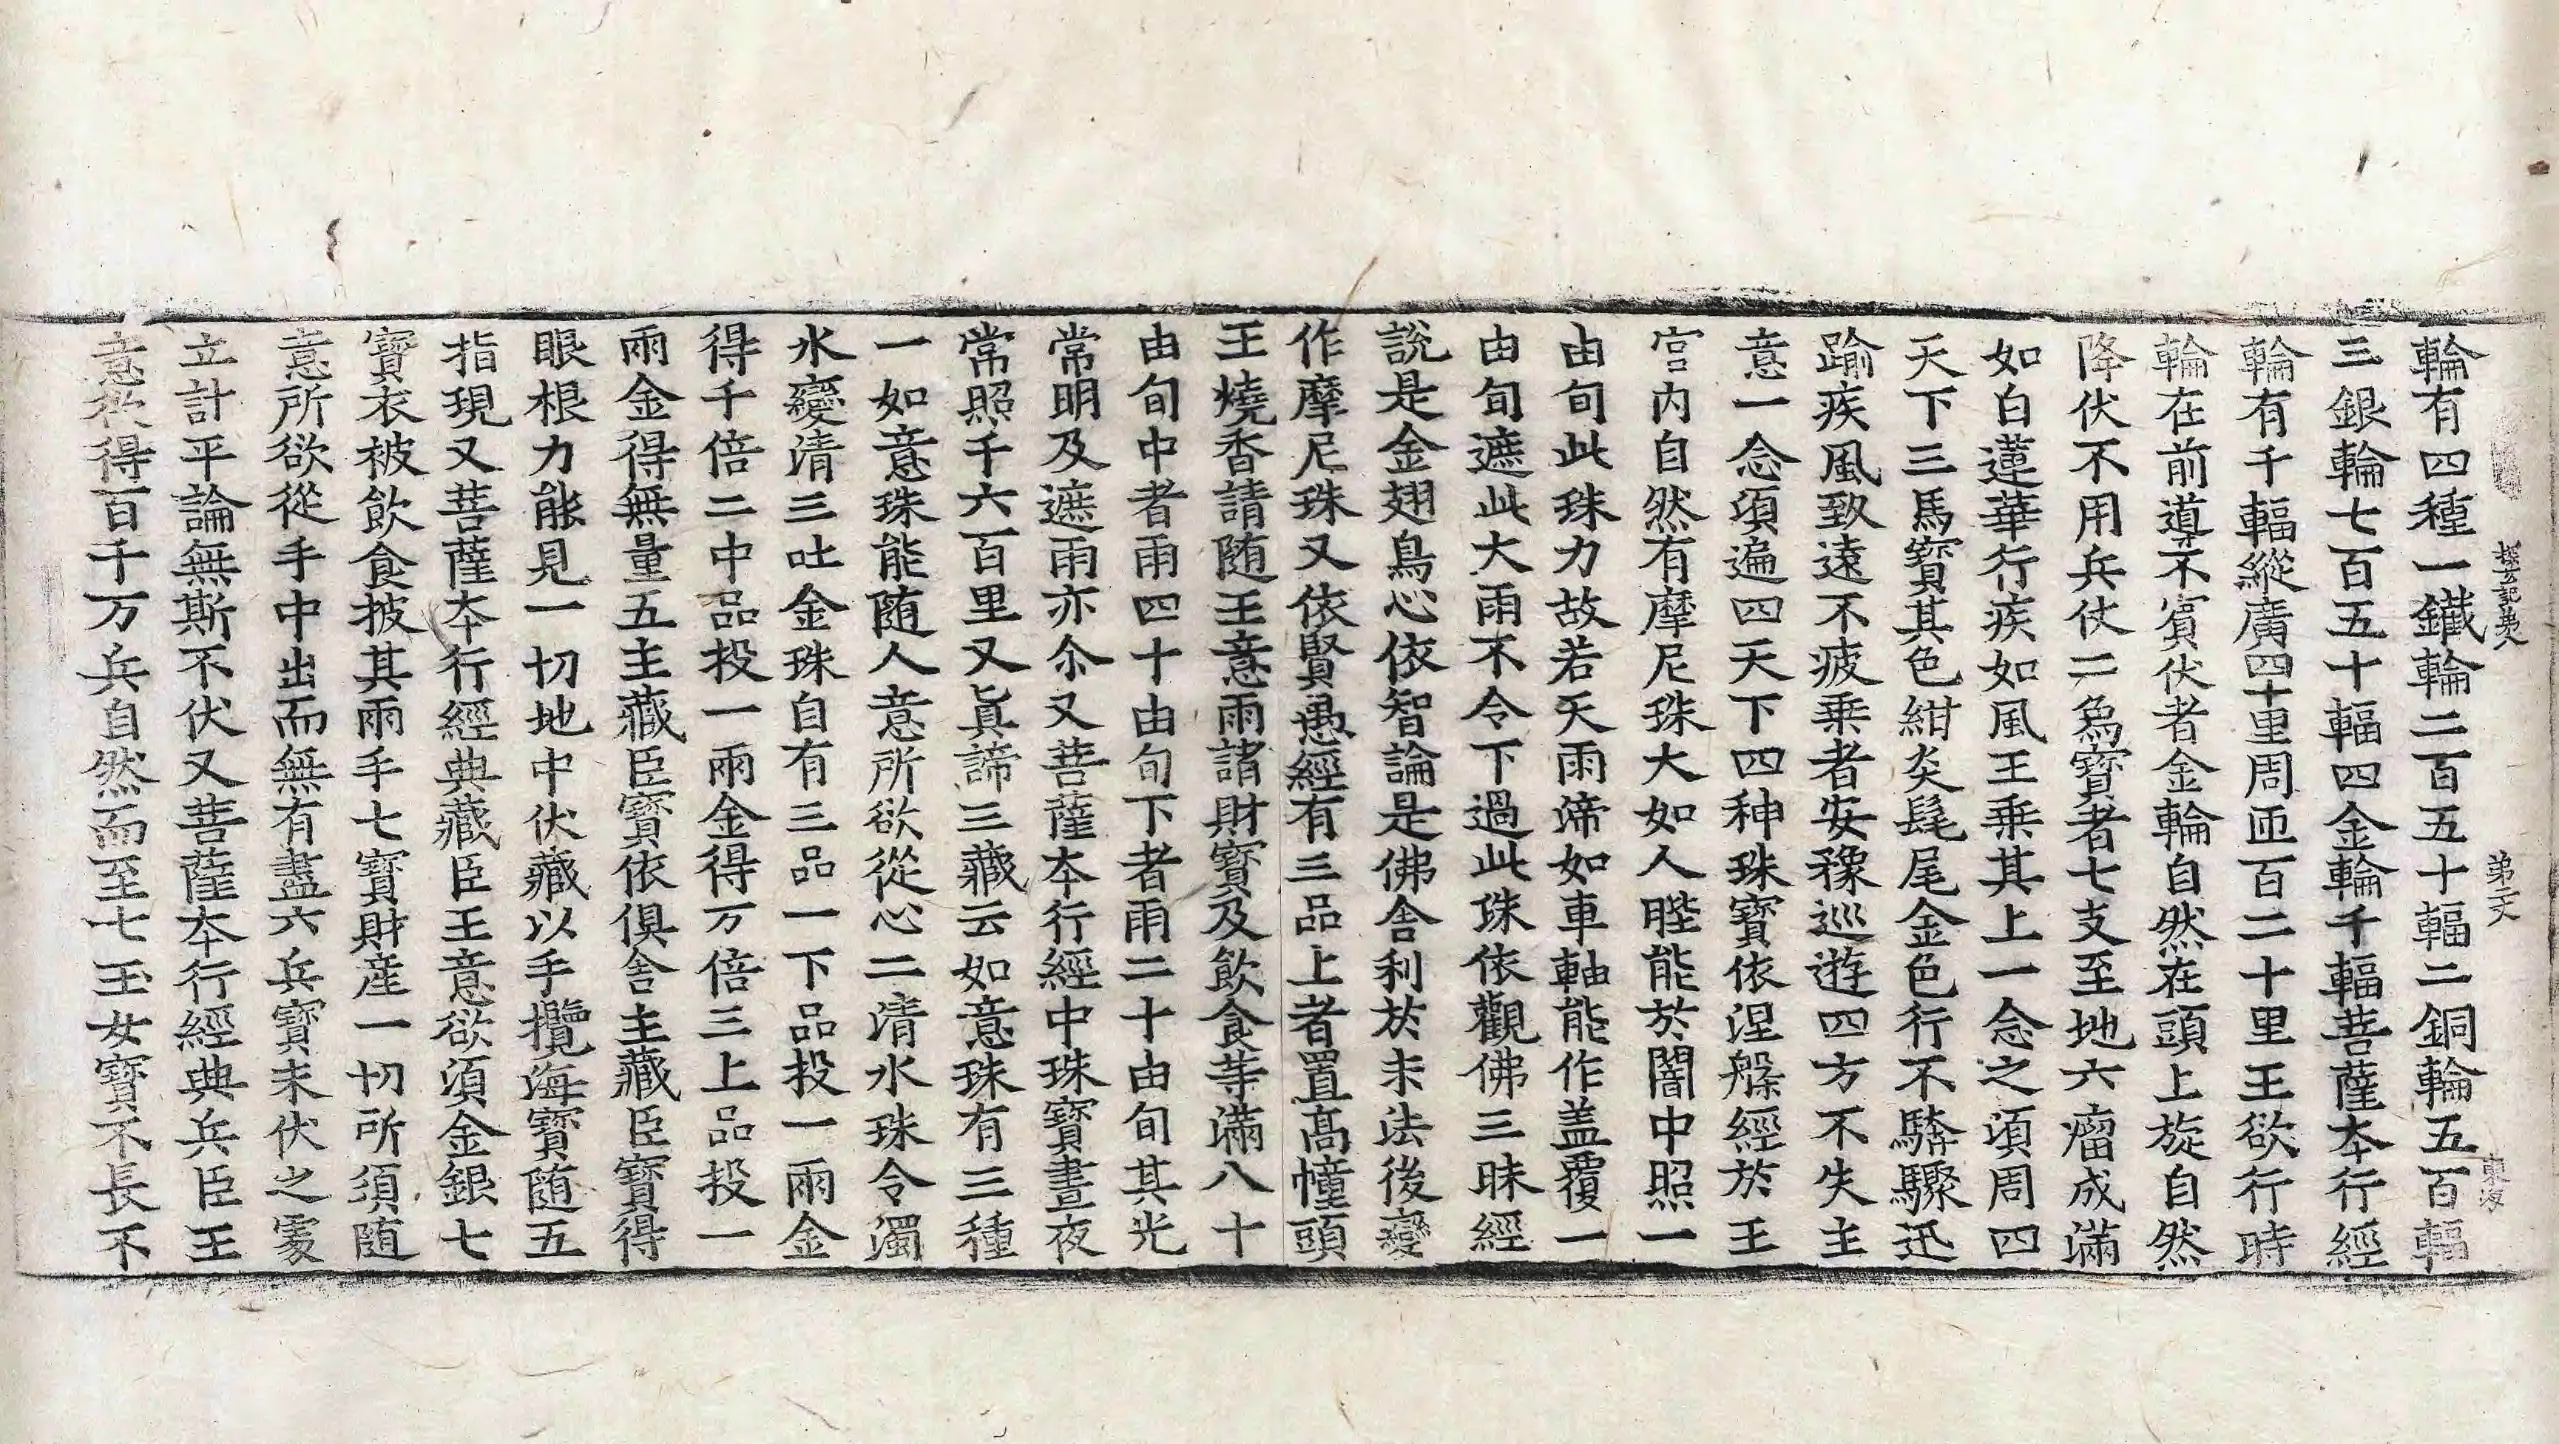 輪有四種一鐵輪二百五十輻二銅輪五百輻
三銀輪七百五十輻四金輪千輻菩薩本行經
輪有千輻縱廣四十里周迊百二十里王欲行時
輪在前導不賓伏者金輪自然在頭上旋自然
降伏不用兵仗二爲寶者七支至地六瘤成滿
如白蓮華行疾如風王乗其上一念之湏周四
天下三馬寶其色紺炎髦尾金色行不騲驟迅
踰疾風致遠不疲乗者安穏巡遊四方不失主
意一念湏遍四天下四神珠寶依涅槃經於王
宫内自然有摩尼珠大如人䏶能於闇中照一
由旬此珠力故若天雨渧如車軸能作盖覆一
由旬遮此大雨不令下過此珠依觀佛三昧經
說是金翅鳥心依智論是佛舍利於末法後變
作摩尼珠又依賢愚經有三品上者置髙幢頭
王燒香請随王意雨諸財寶及飲食等滿八十
由旬中者雨四十由旬下者雨二十由旬其光
常明及遮雨亦尒又菩薩本行經中珠寶晝夜
常照千六百里又真諦三藏云如意珠有三種
一如意珠能随人意所欲從心二清水珠令濁
水變清三吐金珠自有三品一下品投一兩金
得千倍二中品投一兩金得万倍三上品投一
兩金得無量五主藏臣寶依俱舍主藏臣寶得
眼根力能見一切地中伏藏以手攬海寶随五
指現又菩薩本行經典藏臣王意欲湏金銀七
寶衣被飲食披其兩手七寶財産一切所須随
意所欲從手中出而無有盡六兵寶未伏之處
立計平論無斯不伏又菩薩本行經典兵臣王
意欲得百千万兵自然而至七玉女寶不長不